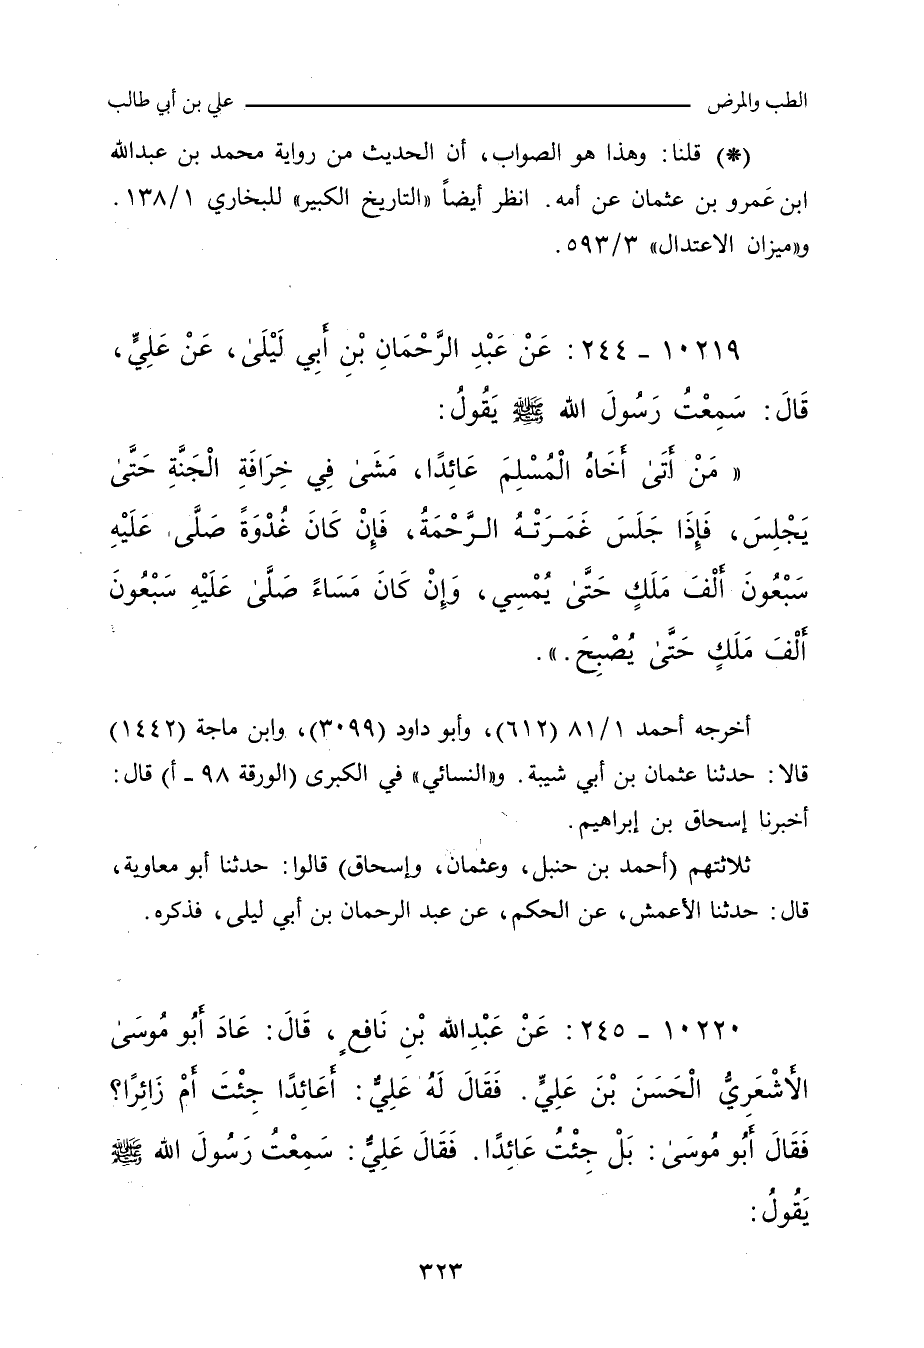 الطب والمرض ـــــــــــــــــــــــــ علي بن أبي طالب
(*) قلنا: وهذا هو الصواب، أن الحديث من رواية محمد بن عبدالله
ابن عَمرو بن عثمان عن أمه. انظر أيضاً «التاريخ الكبير» للبخاري ١٣٨/١.
و«ميزان الاعتدال» ٥٩٣/٣.
١٠٢١٩ - ٢٤٤: عَنْ عَبْدِ الرَّحْمَانِ بْنِ أَبِي لَيْلَىٰ، عَنْ عَلِيٍّ،
قَالَ: سَمِعْتُ رَسُولَ الله ﷺ يَقُولُ:
« مَنْ أَتَىٰ أَخَاهُ الْمُسْلِمَ عَائِدًا، مَشَىٰ فِي خِرَافَةِ الْجَنَّةِ حَتَّىٰ
يَجْلِسَ، فَإِذَا جَلَسَ غَمَرَتْهُ الرَّحْمَةُ، فَإِنْ كَانَ غُدْوَةً صَلَّى عَلَيْهِ
سَبْعُونَ أَلْفَ مَلَكٍ حَتَّىٰ يُمْسِي، وَإِنْ كَانَ مَسَاءً صَلَّىٰ عَلَيْهِ سَبْعُونَ
أَلْفَ مَلَكٍ حَتَّىٰ يُصْبِحَ.».
أخرجه أحمد ٨١/١ (٦١٢)، وأبو داود (٣٠٩٩)، وابن ماجة (١٤٤٢)
قالا: حدثنا عثمان بن أبي شيبة. و«النسائي» في الكبرى (الورقة ٩٨ - أ) قال:
أخبرنا إسحاق بن إبراهيم.
ثلاثتهم (أحمد بن حنبل، وعثمان، وإسحاق) قالوا: حدثنا أبو معاوية،
قال: حدثنا الأعمش، عن الحكم، عن عبد الرحمان بن أبي ليلى، فذكره.
١٠٢٢٠ - ٢٤٥: عَنْ عَبْدِالله بْنِ نَافِعٍ، قَالَ: عَادَ أَبُو مُوسَىٰ
الأَشْعَرِيُّ الْحَسَنَ بْنَ عَلِيٍّ. فَقَالَ لَهُ عَلِيٌّ: أَعَائِدًا جِئْتَ أَمْ زَائِرًا؟
فَقَالَ أَبُو مُوسَىٰ: بَلْ جِئْتُ عَائِدًا. فَقَالَ عَلِيٌّ: سَمِعْتُ رَسُولَ الله ﷺ
يَقُولُ:
٣٢٣